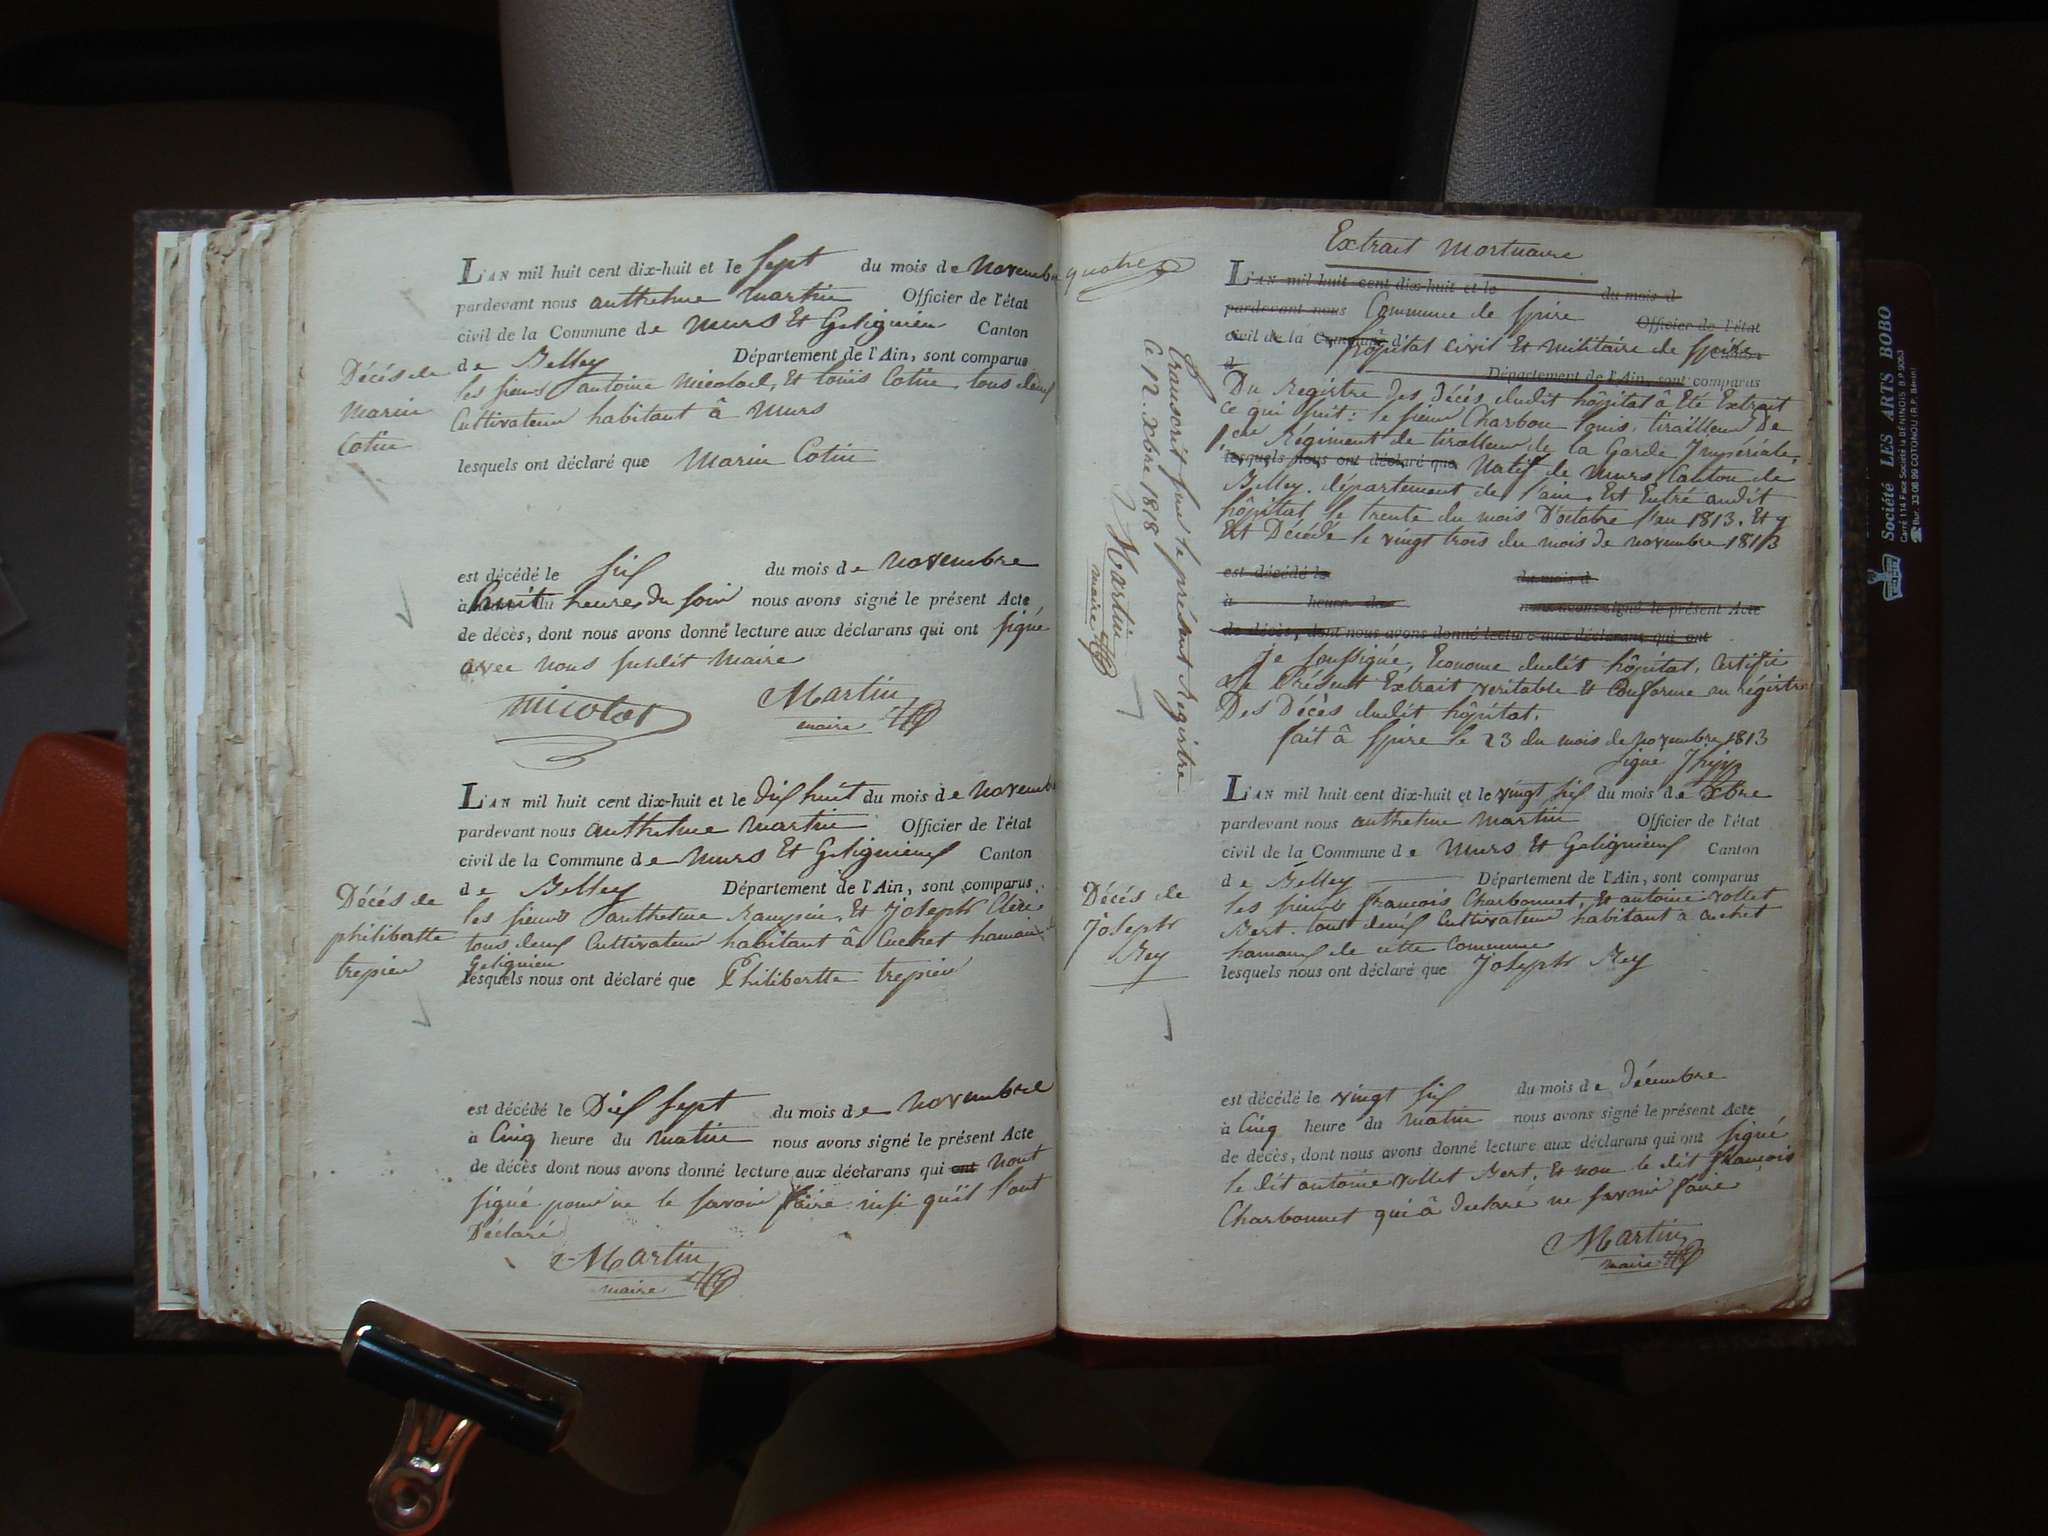 L'AN mil huit cent dix-huit et le sept du mois de novembre
pardevant nous anthelme martin Officier de l'état
civil de la Commune de murs Et Gelignieu Canton
de Belley Département de l'Ain, sont comparus
les sieurs antoine Micolod, Et louis Cotin, tous deux
Cultivateur habitant â Murs
lesquels ont déclaré que Marin Cotin
est décédé le six du mois de novembre
à huit du heures du soir nous avons signé le présent Acte
de décès, dont nous avons donné lecture aux déclarans qui ont signé
avec nous susdit maire
micolod Martin
maire
Décés de
Marin
Cotin
L'AN mil huit cent dix-huit et le dix huit du mois de novembre
pardevant nous anthelme martin Officier de l'état
civil de la Commune de murs Et Gelignieux Canton
de Belley Département de l'Ain, sont comparus
les sieurs anthelme Et Joseph Clerc
tous deux Cultivateur habitant â Cuchet hamau de
Gelignieu
lesquels nous ont déclaré que Philibertte trepier
est décédé le Dix sept du mois de novembre
à Cinq heure du matin nous avons signé le présent Acte
de décès dont nous avons donné lecture aux déclarans qui ont nont
signé pour ne le savoir faire insi qu'il l'ont
Déclaré
Martin
maire
Décés de
philibertte
trepier
quatre
Extrait Mortuaire
L'AN mil huit cent dix-huit et le du mois d
pardevant nous Commune de spire Officier de l'état
civil de la Commune d hôpital civil Et militaire de spire
d Département de l'Ain, sont comparus
Du Registre des Décés dudit hôpital â Eté Extrait
ce qui suit: le sieur Charbon louis, tirailleur De
1er Régiment de tirailleur de la Garde Impériale,
lesquels nous ont déclaré que Natif de Murs Canton de
Belley, département de l'ain. Est Entré audit
hôpital le trente du mois D'octobre l'an 1813. Et y
Est Décédé le vingt trois du mois de novembre 1813
est décédé le du mois d
à heure du nous avons signé le présent Acte
de décès, dont nous avons donné lecture aux déclarans qui ont
je soussigné, Econome dudit hôpital, Certifie
le Présent Extrait veritable Et Conforme au régistre
Des Décès dudit hôpital.
fait â spire le 23 du mois de novembre 1813
signé
transcrit sur le présent Registre
ce 12. xbre 1818
Martin
maire
L'AN mil huit cent dix-huit et le vingt six du mois de xbre
pardevant nous anthelme martin Officier de l'état
civil de la Commune de Murs Et Gelignieux Canton
de Belley Département de l'Ain, sont comparus
les sieurs françois Charbonnet, Et antoine vollet
Bert. tout deux Cultivateur habitant â cuchet
hamaux de cette Commune
lesquels nous ont déclaré que Joseph Rey
est décédé le vingt six du mois de décembre
à Cinq heure du matin nous avons signé le présent Acte
de décès, dont nous avons donné lecture aux déclarans qui ont signé
le dit antoine vollet Bert. Et non le dit françois
Charbonnet qui â declaré ne savoir faire
Martin
maire
Décés de
Joseph
Rey
Société LES ARTS BOBO
Carré 114 Face Société la BÉNINOIS B.P. 9053
Bur. 33 06 99 COTONOU (R.P. Bénin)